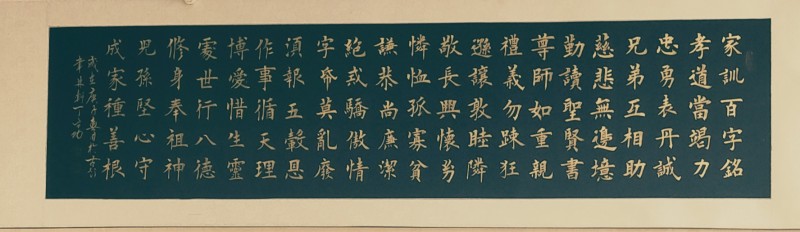 家訓百字銘
孝道當竭力
忠勇表丹誠
兄弟互相助
慈悲無邊境
勤讀聖賢書
尊師如重親
禮義勿踈狂
遜讓敦睦隣
敬長與懷幼
憐恤孤寡貧
謙恭尚廉潔
絕戒驕傲情
字帋莫亂廢
湏報五穀恩
作事循天理
博愛惜生靈
處世行八德
修身奉祖神
兒孫堅心守
成家種善根